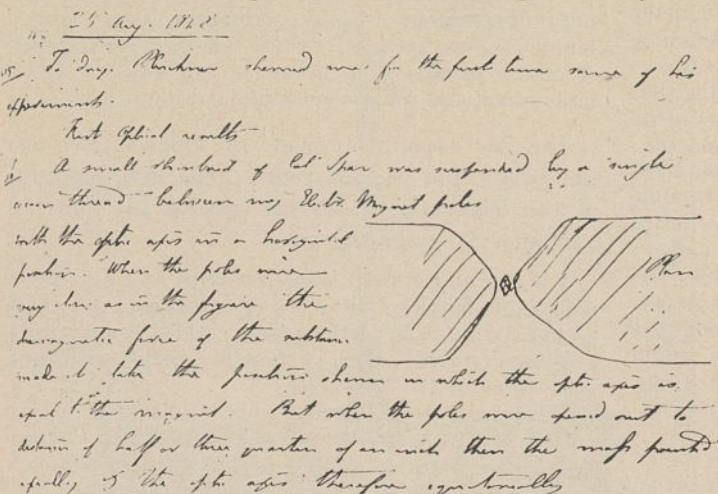 25 Aug. 1848
To day. Plucker shewed me for the first time some of his
experiments.
First optical results
A small rhomboid of Cal Spar was suspended by a single
cocoon thread between my Electro Magnet poles
with the optic axis in a horizontal
position. When the poles were
very close as in the figure the
Plan
diamagnetic force of the substance
made it take the position shewn in which the optic axis is
axial to the magnet. But when the poles were opened out to
distance of half or three quarters of an inch then the mass pointed
axially & the optic axis therefore equatorially